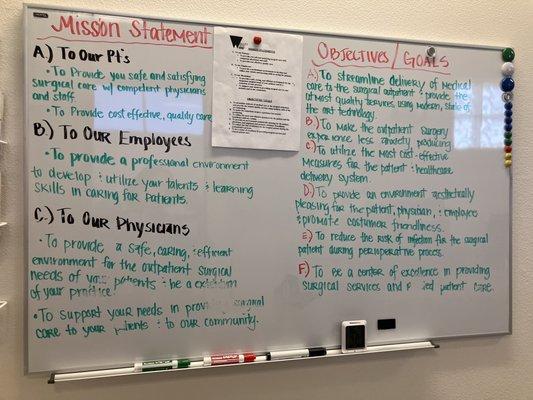 Mission Statement
A.) To Our Pt's
· To Provide you safe and satisfying
surgical care w/ competent physicians
and staff.
· To Provide cost effective, quality care
B.) To Our Employees
· To provide a professional environment
to develop & utilize your talents & learning
skills in caring for patients.
C.) To Our Physicians
· To provide a safe, caring, & efficient
environment for the outpatient surgical
needs of your patients & be a extension
of your practice.
· To support your needs in prov surgical
care to your patients & to our community.
Objectives/Goals
A.) To streamline delivery of medical
care to the surgical outpatient & provide the
utmost quality services using modern, state of
the art technology.
B.) To make the outpatient surgery
experience less anxiety producing
C.) To utilize the most cost-effective
measures for the patient & healthcare
delivery system.
D.) To provide an environment aesthetically
pleasing for the patient, physician, & employee
& promote costumer friendliness.
E.) To reduce the risk of infection for the surgical
patient during perioperative process.
F.) To be a center of excellence in providing
surgical services and patient care.